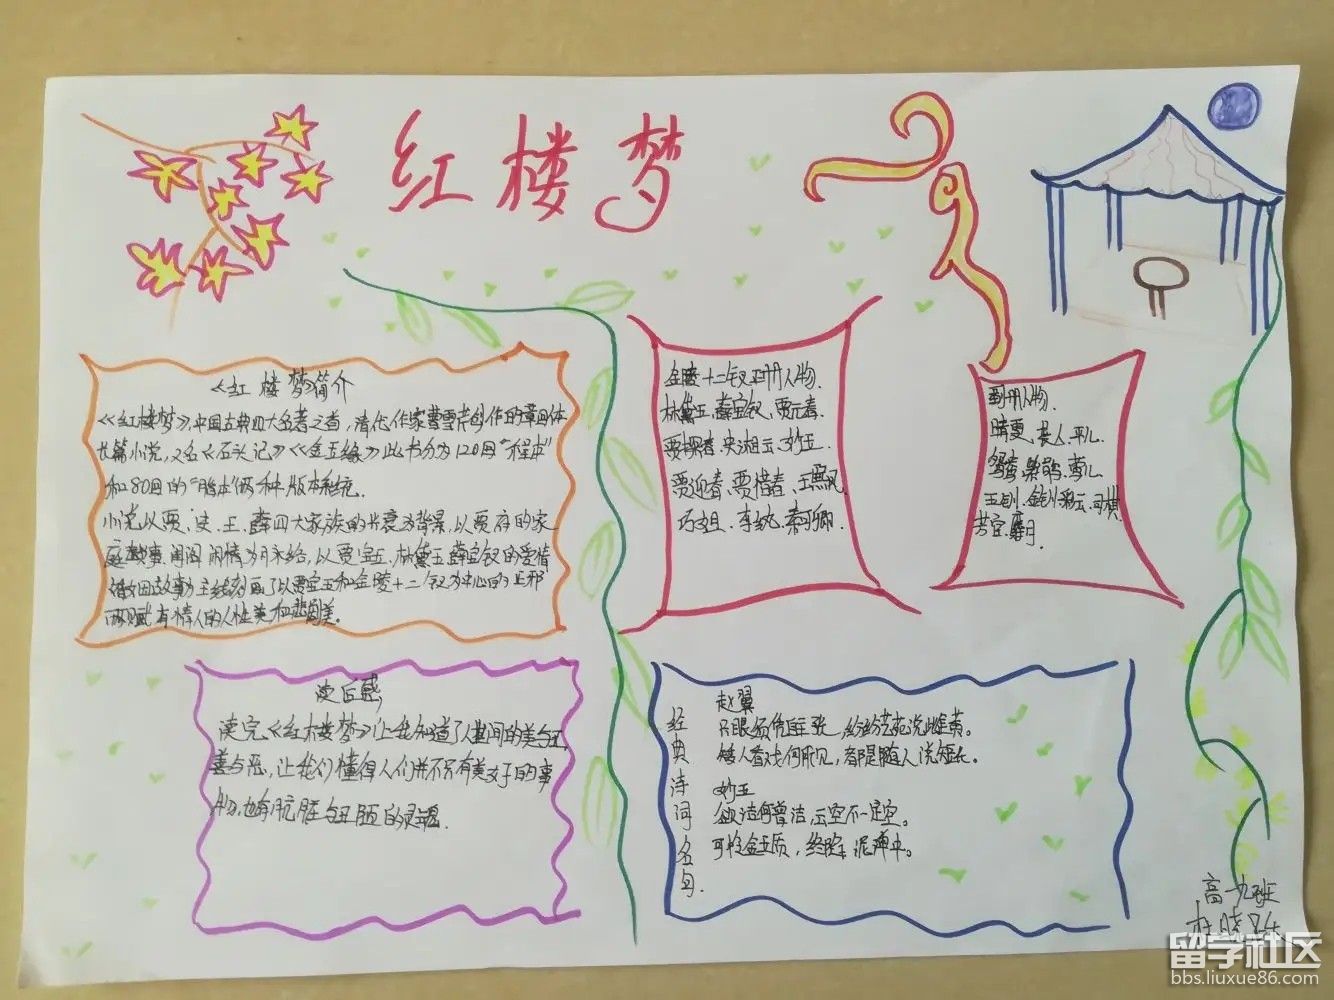 红楼梦
《红楼梦》简介
《红楼梦》,中国古典四大名著之首,清代作家曹雪芹创作的章回体
长篇小说,又名《石头记》《金玉缘》此书分为120回"程本"
和80回的"脂本"两种版本系统。
小说以贾、史、王、薛四大家族的兴衰为背景,以贾府的家
庭故事、闺阁闲情为脉络,以贾宝玉、林黛玉、薛宝钗的爱情
故事主线刻画了以贾宝玉和金陵十二钗为中心的正邪
两赋有情人的人性美和悲剧美。
金陵十二钗正册人物.
林黛玉、薛宝钗、贾元春.
贾探春、史湘云、妙玉.
贾迎春、贾惜春、王熙凤
巧姐、李纨、秦可卿.
副册人物.
晴雯、袭人、平儿.
鸳鸯、紫鹃、莺儿
玉钏、金钏、彩云、司棋
芳官、麝月.
读后感
读完《红楼梦》让我知道了人世间的美与丑
善与恶,让我们懂得人们并不只有美好的事
物,也有肮脏与丑陋的灵魂.
经典诗词名句.
赵翼
只眼须凭自主张,纷纷艺苑说雌黄。
矮人看戏何所见,都是随人说短长。
妙玉
欲洁何曾洁,云空不一定空。
可怜金玉质,终陷泥淖中。
高一九班
杜晓
留学社区
bbs.liuxue86.com